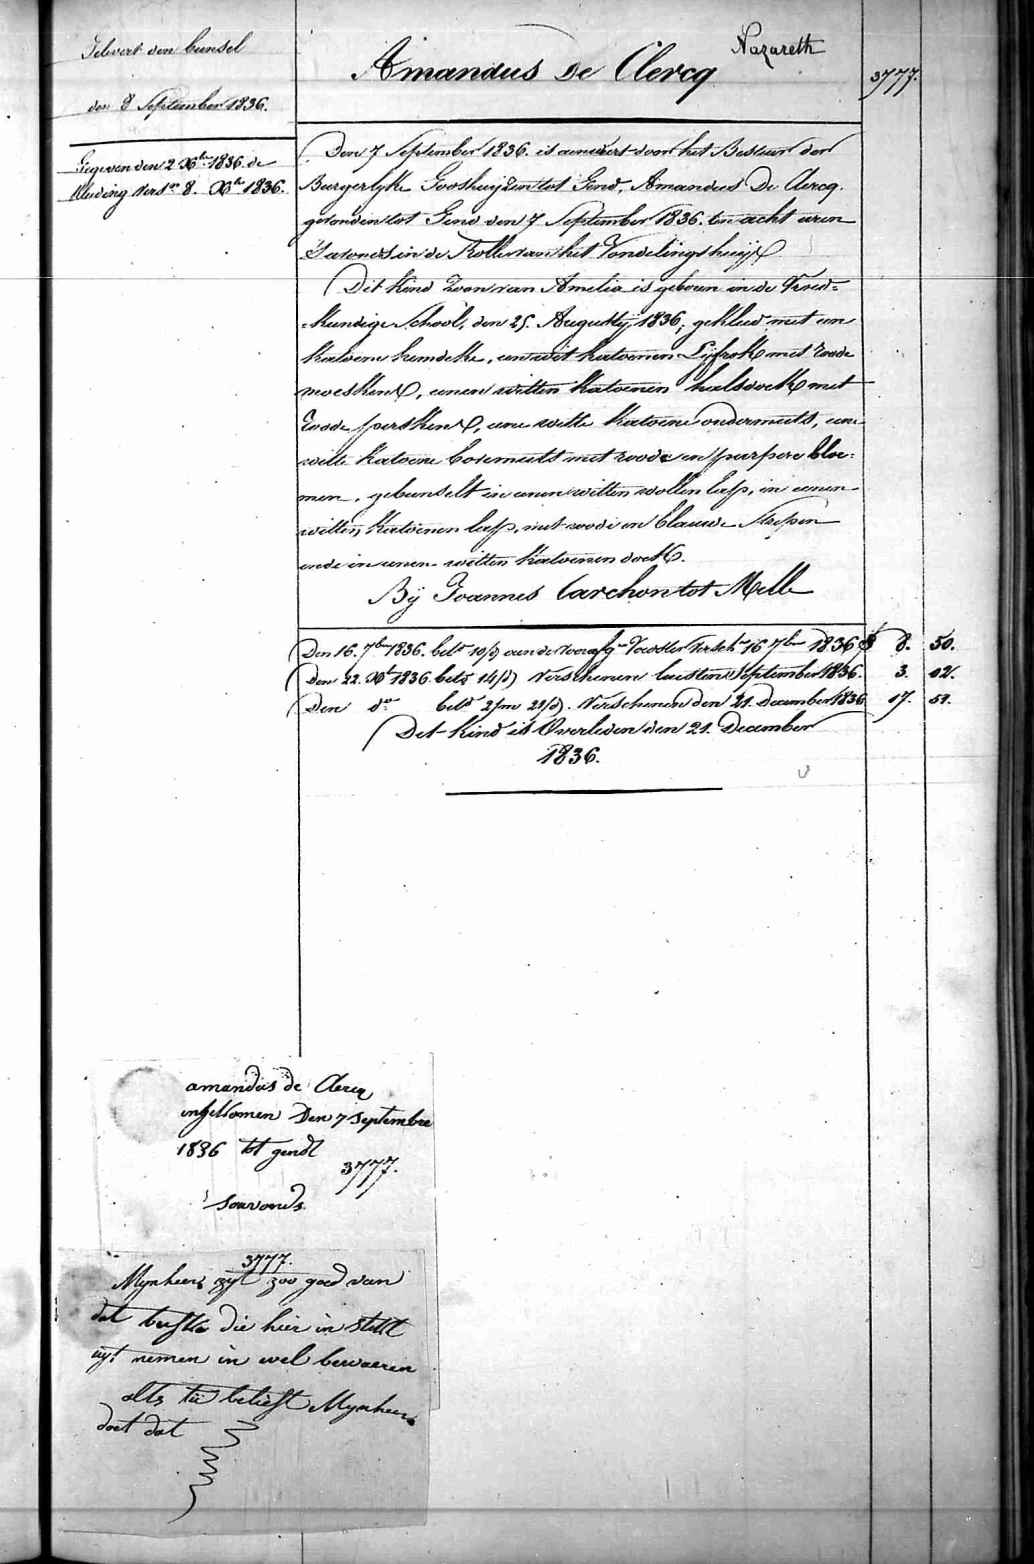 Gelevert den bunsel
den 8 September 1836.
Gegeven den 2 Xber 1836. de
kleeding versn 8. Xbr 1836.
Nazareth
Amandus De Clercq
3777.
Den 7 September 1836. is aenveert door het Bestuer der
Burgerlyke Godshuyzen tot Gend, Amandus De Clercq.
gevonden tot Gend den 7 September 1836. ten acht uren
S'avonds in de Rolle van het Vondelingshuys
Dit kind Zoon van Amelia is geboren in de Vroed=
=kundige School, den 25. Augusty 1836, gekleed met een
katoene hemdeke, een wit katoenen Lyfrok met roode
moeskens, eenen witten katoenen halsdoek met
roode perskens, eene witte katoene ondermuts, eene
witte katoene bovemuts met roode en purpere bloe=
men, gebunselt in eenen witten wollen lasp, in eenen
witten katoenen lasp, met roode en blauwe strepen
ende in eenen witten katoenen doek.
By Joannes Carchon tot Melle
Den 16. 7ber 1836. betn 10/d aen de voorafge Voedster versche 16 7ber 1836 8. 50.
Den 22. Xbr 1836 betn 14/d verschenen laesten September 1836. 3. 02.
Den do betn 2/m 21/d. Verschenen den 21. December 1836 17. 51.
Det kind is Overleden den 21. December
1836.
amandus de Clercq
ingekomen Den 7 Septembre
1836 tot gendt
3777.
Savonds
3777.
Mynheer zyt zoo goed van
dat briefke die hier in stekt
uyt nemen in wel bewaeren
alts tu belieft Mynheer
doet dat